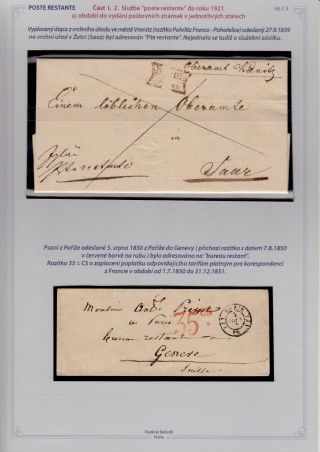 POSTE RESTANTE
Část I. 2. Služba "poste restante" do roku 1921
list č. 5
a) období do vydání poštovních známek v jednotlivých státech
Vyplacený dopis z vrchního úřadu ve městě Vranitz (razítko Pohrlitz Franco - Pohořelice) odeslaný 27.9.1839
na vrchní úřad v Žatci (Saaz) byl adresován "Pte restante". Nejednalo se tudíž o služební zásilku.
Oberamt
Einem löblichen Oberamte
in
Saar
Psaní z Paříže odeslané 5. srpna 1850 z Paříže do Genevy ( příchozí razítko s datem 7.8.1850
v červené barvě na rubu ) bylo adresováno na "bureau restant".
Razítko 35 = CS o zaplacení poplatku odpovídajícího tarifům platným pro korespondenci
z Francie v období od 1.7.1850 do 31.12.1851.
Monsieur
35 cs
bureau restant
Genève
Suisse
Vladimír Malovík
Praha